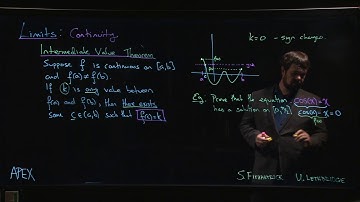 Limits: Continuity.
Intermediate Value Theorem
Suppose f is continuous on [a,b]
and f(a) ≠ f(b).
If k is any value between
f(a) and f(b), then there exists
some c ∈ (a,b) such that f(c)=k.
k=0 - sign changes.
Eg. Prove that the equation cos(x) = x
has a solution on [0, π/2]. cos(x) - x = 0
f(x)
APEX
S. Fitzpatrick U. Lethbridge